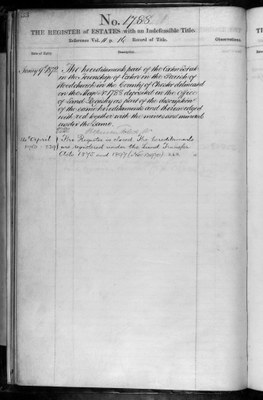 No. 1788
THE REGISTER of ESTATES with an Indefeasible Title.
Reference Vol. Record of Title.
Date of Entry. Description. Observations.
The hereditaments part of the Estate
in the Township of in the Parish of
Woodchurch in the County of Chester delineated
on the Map No 1788 deposited in the Office
of Land Registry as part of the description
of the same hereditaments and thereon edged
with red together with the mines and minerals
under the same.
This Register is closed. The hereditaments
are registered under the Land Transfer
Acts 1875 and 1897